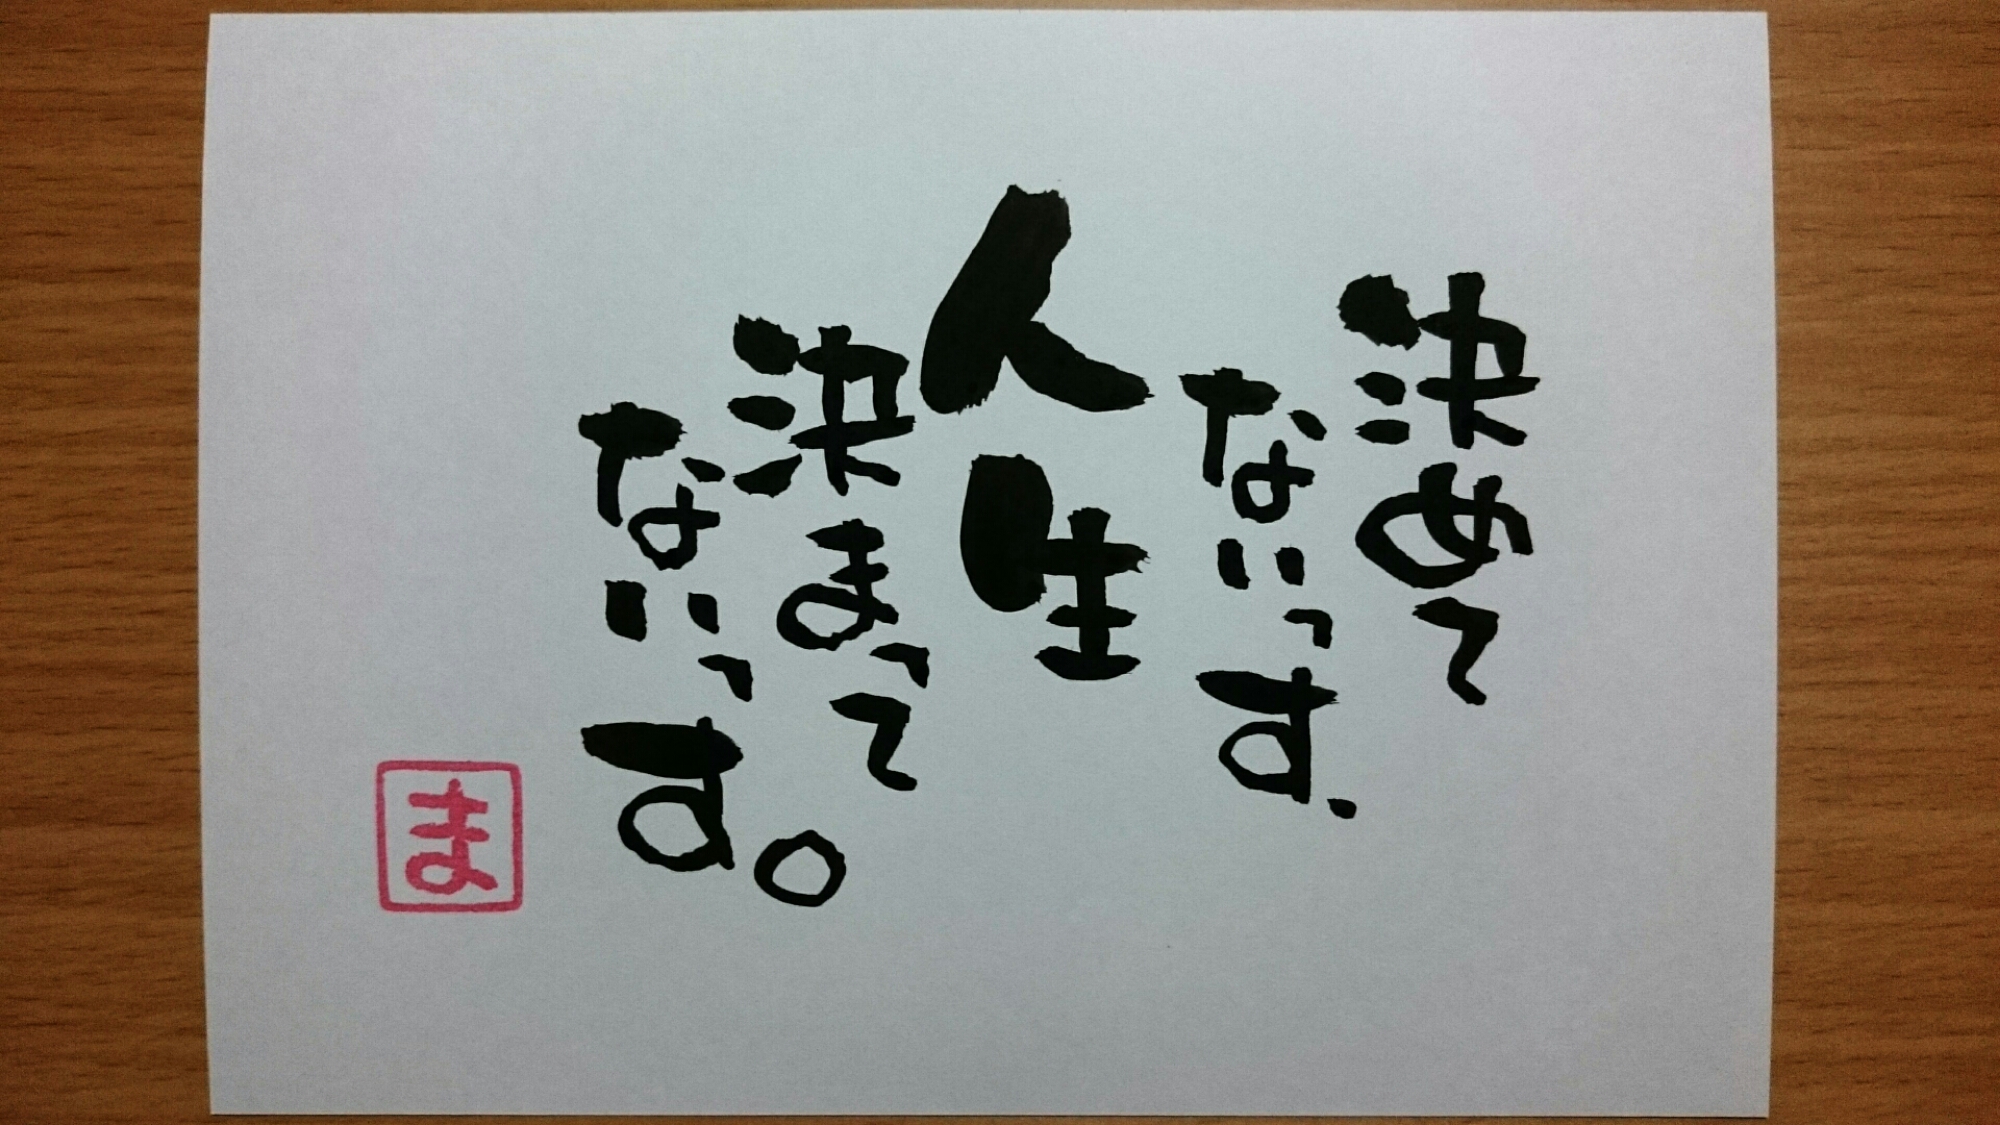 決めて
ないっす、
人生
決まって
ないっす。
ま